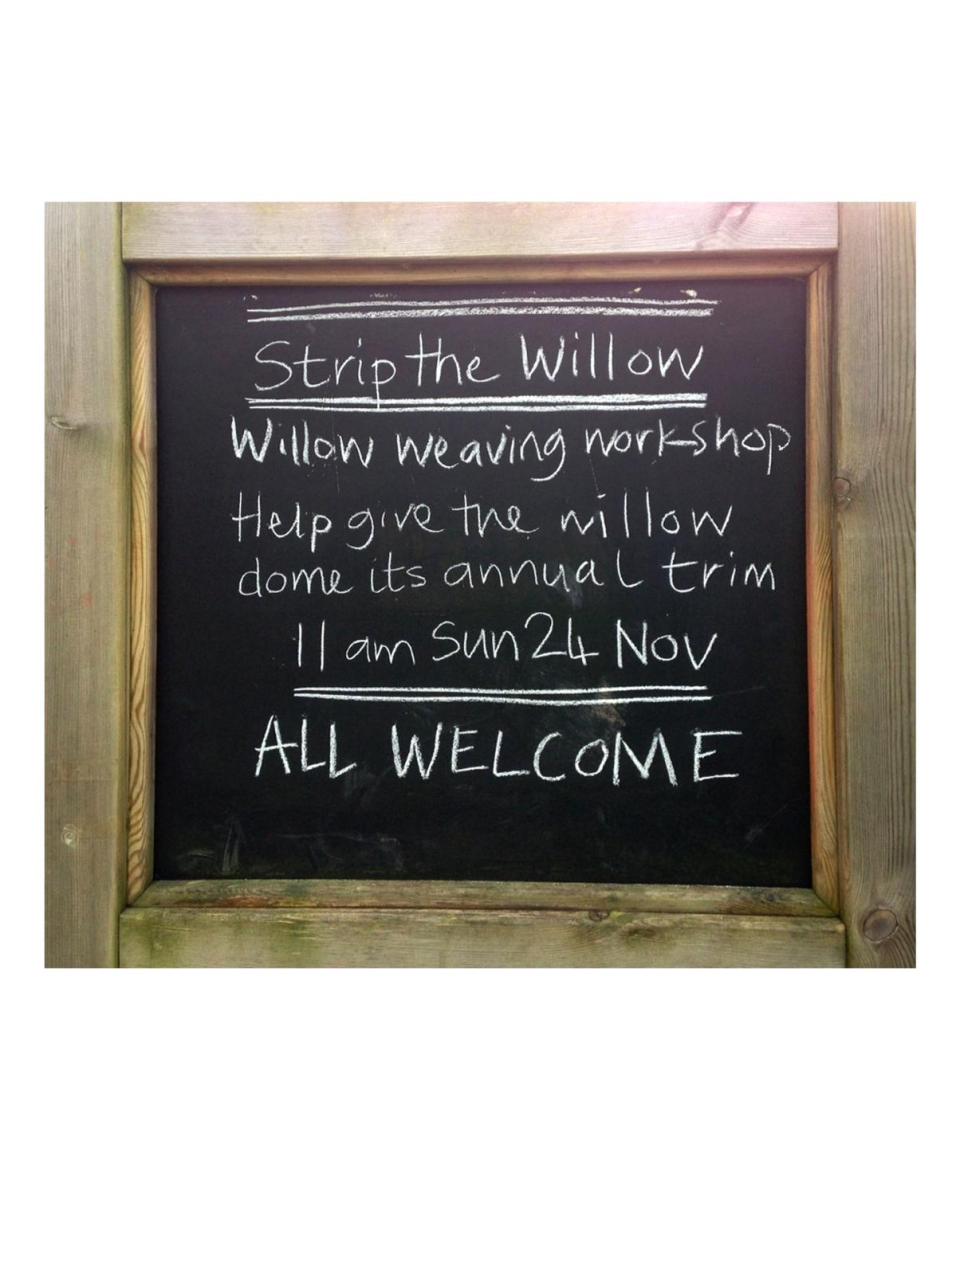 Strip the Willow
Willow weaving workshop
Help give the willow
dome its annual trim
11 am Sun 24 Nov
ALL WELCOME